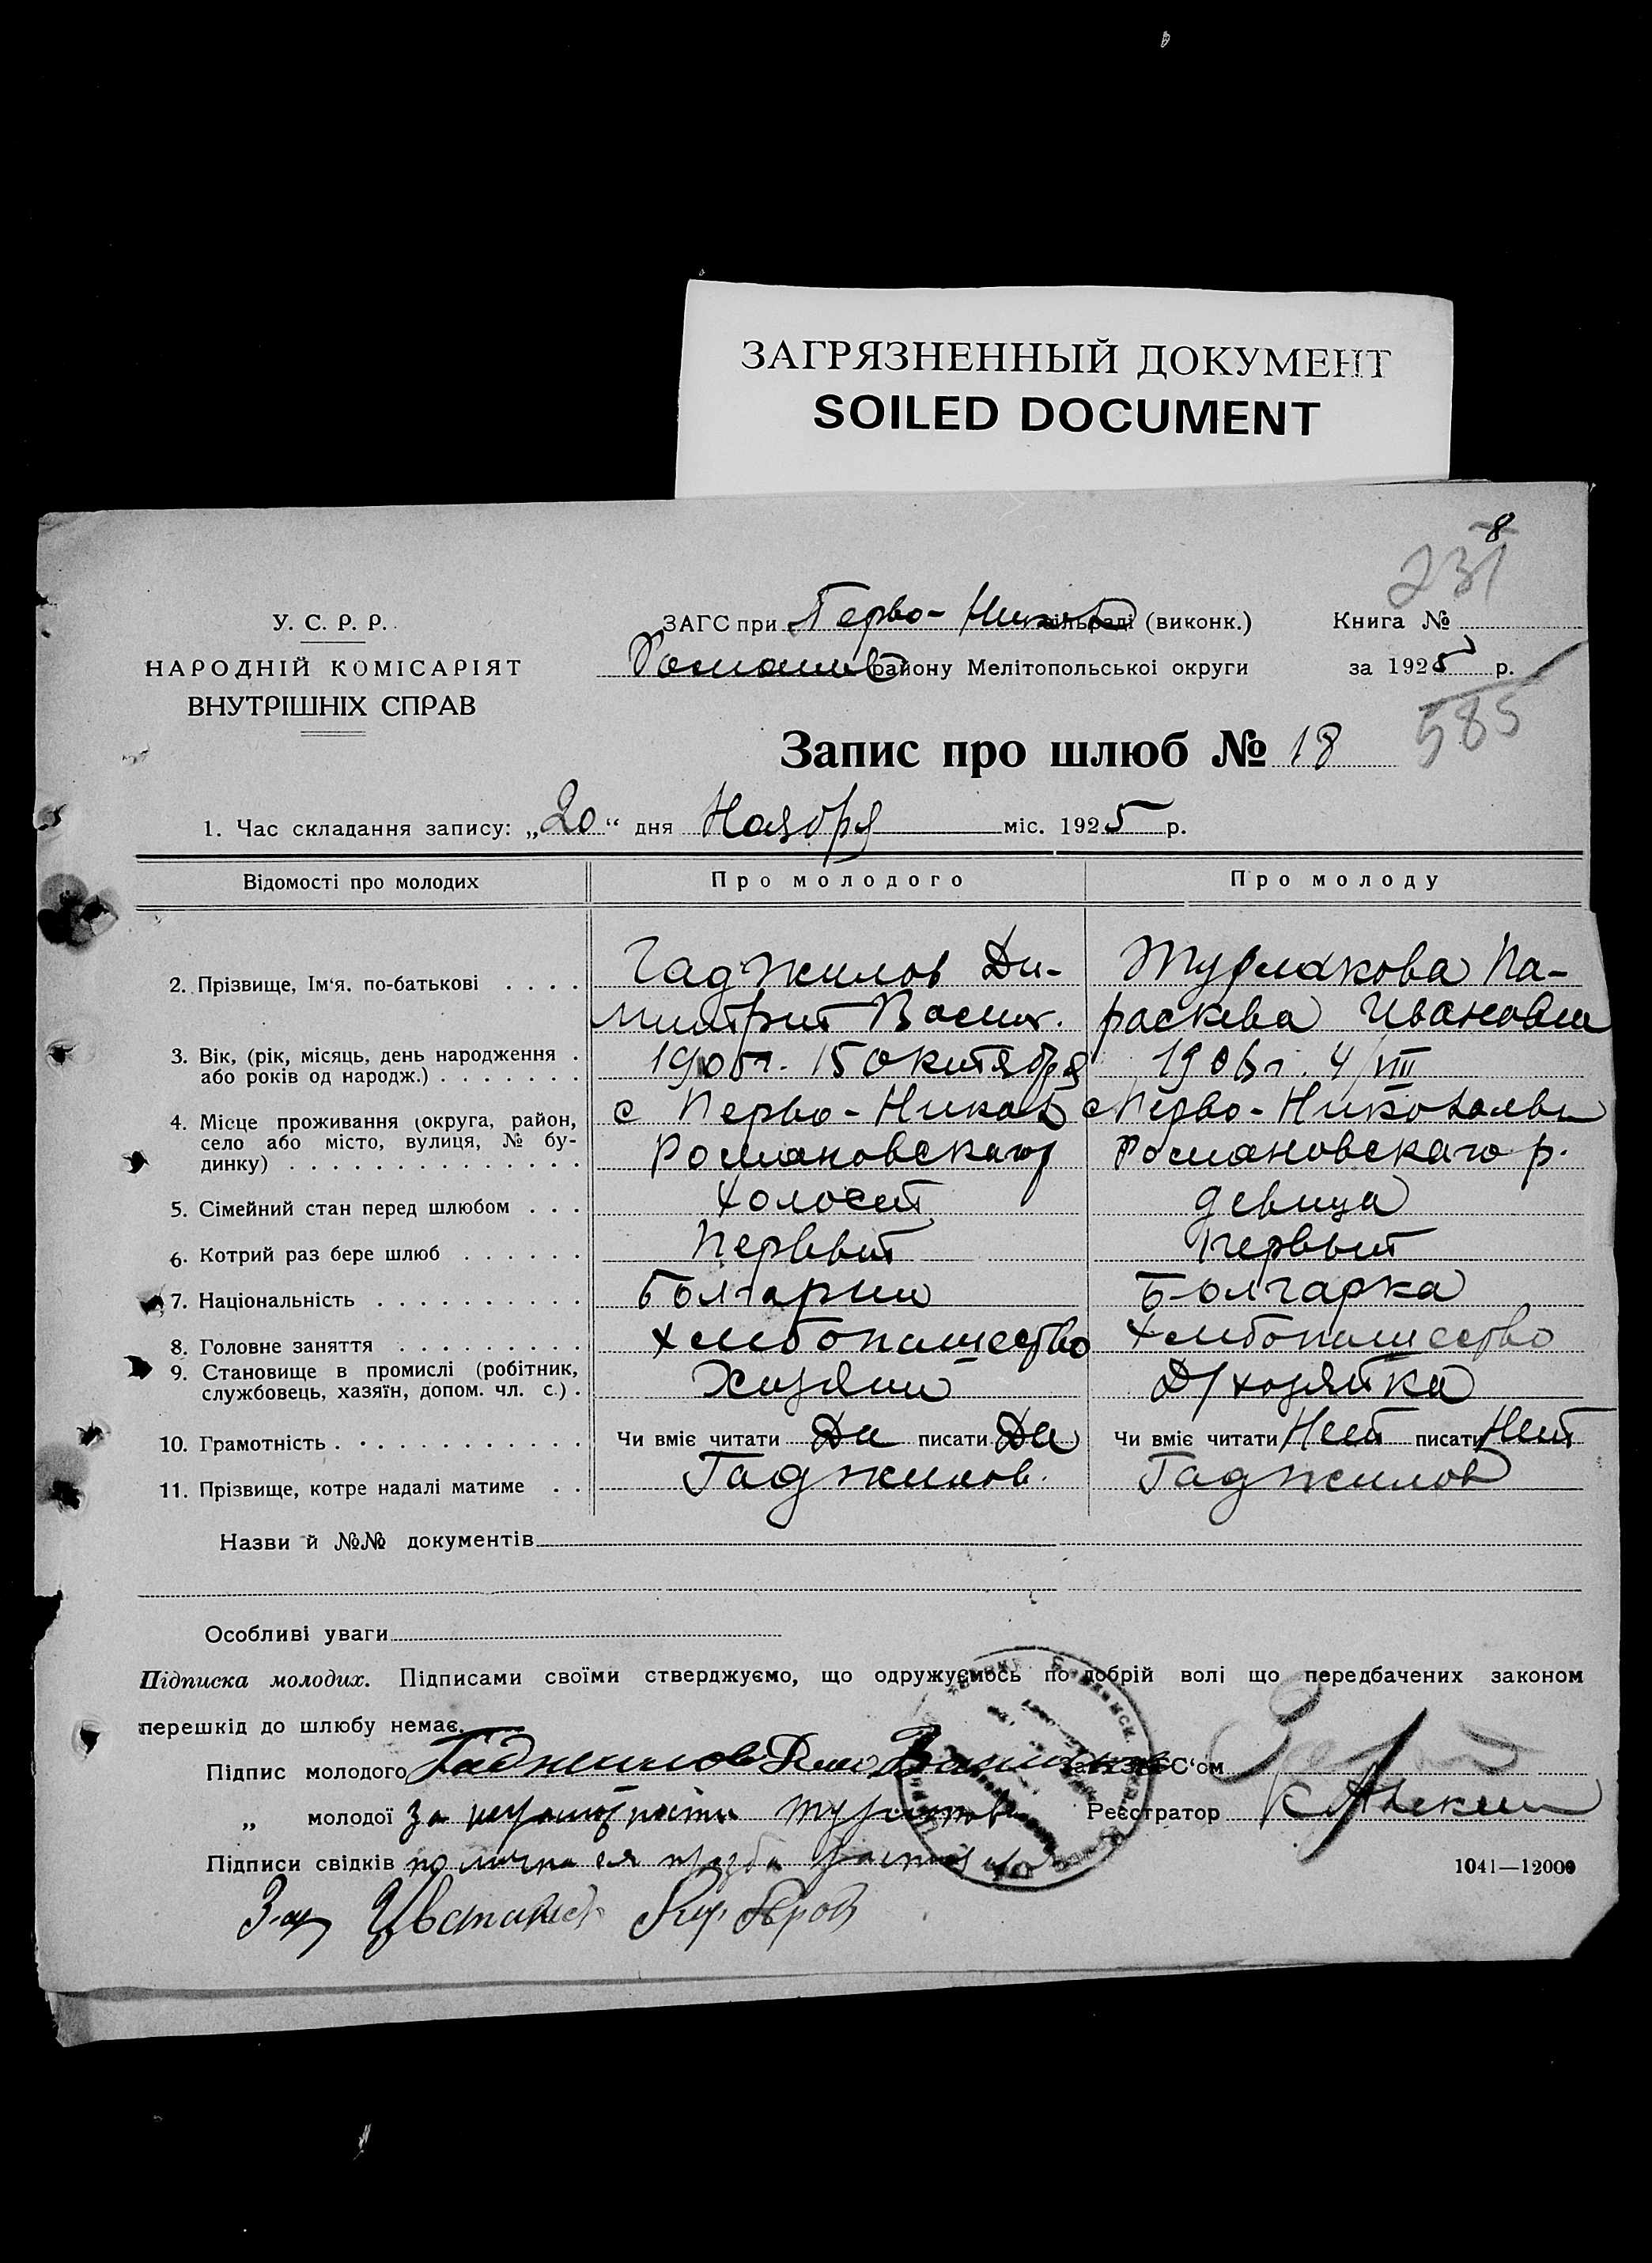 ЗАГРЯЗНЕННЫЙ ДОКУМЕНТ
SOILED DOCUMENT
8
231
У. С. Р. Р.
НАРОДНІЙ КОМІСАРІЯТ
ВНУТРІШНІХ СПРАВ
ЗАГС при Перво- сільраді (виконк.)
району Мелітопольської округи
Книга №
за 1925 р.
585
Запис про шлюб № 18
1. Час складання запису: „20“ дня Ноября міс. 1925 р.
Відомості про молодих Про молодого Про молоду
2. Прізвище, Ім‘я. по-батькові Гаджилов Ди-митрий Васил. Журлакова Па-раскева Ивановна
3. Вік, (рік, місяць, день народження або років од народж.) 1905г. 15 октября 1906г. 4/VIII
4. Місце проживання (округа, район, село або місто, вулиця, № будинку) с Перво-Никол Романовскаго р с Перво-Николаевки Романовскаго р.
5. Сімейний стан перед шлюбом холост девица
6. Котрий раз бере шлюб Первый Первый
7. Національність Болгарин Болгарка
8. Головне заняття хлебопашество хлебопашество
9. Становище в промислі (робітник, службовець, хазяїн, допом. чл. с.) Хозяин Д/хозяйка
10. Грамотність Чи вміє читати Да писати Да Чи вміє читати Нет писати Нет
11. Прізвище, котре надалі матиме Гаджилов. Гаджилов
Назви й №№ документів
Особливі уваги
Підписка молодих. Підписами своїми стверджуємо, що одружуємось по добрій волі що передбачених законом
перешкід до шлюбу немає.
Підпис молодого Гаджилов С‘ом
„ молодої За Реєстратор
Підписи свідків
1041—12000